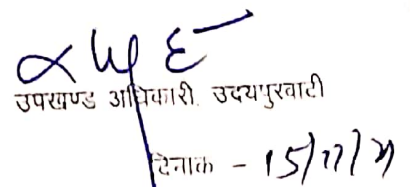 उपखण्ड अधिकारी, उदयपुरवाटी
दिनाक - 15/11/